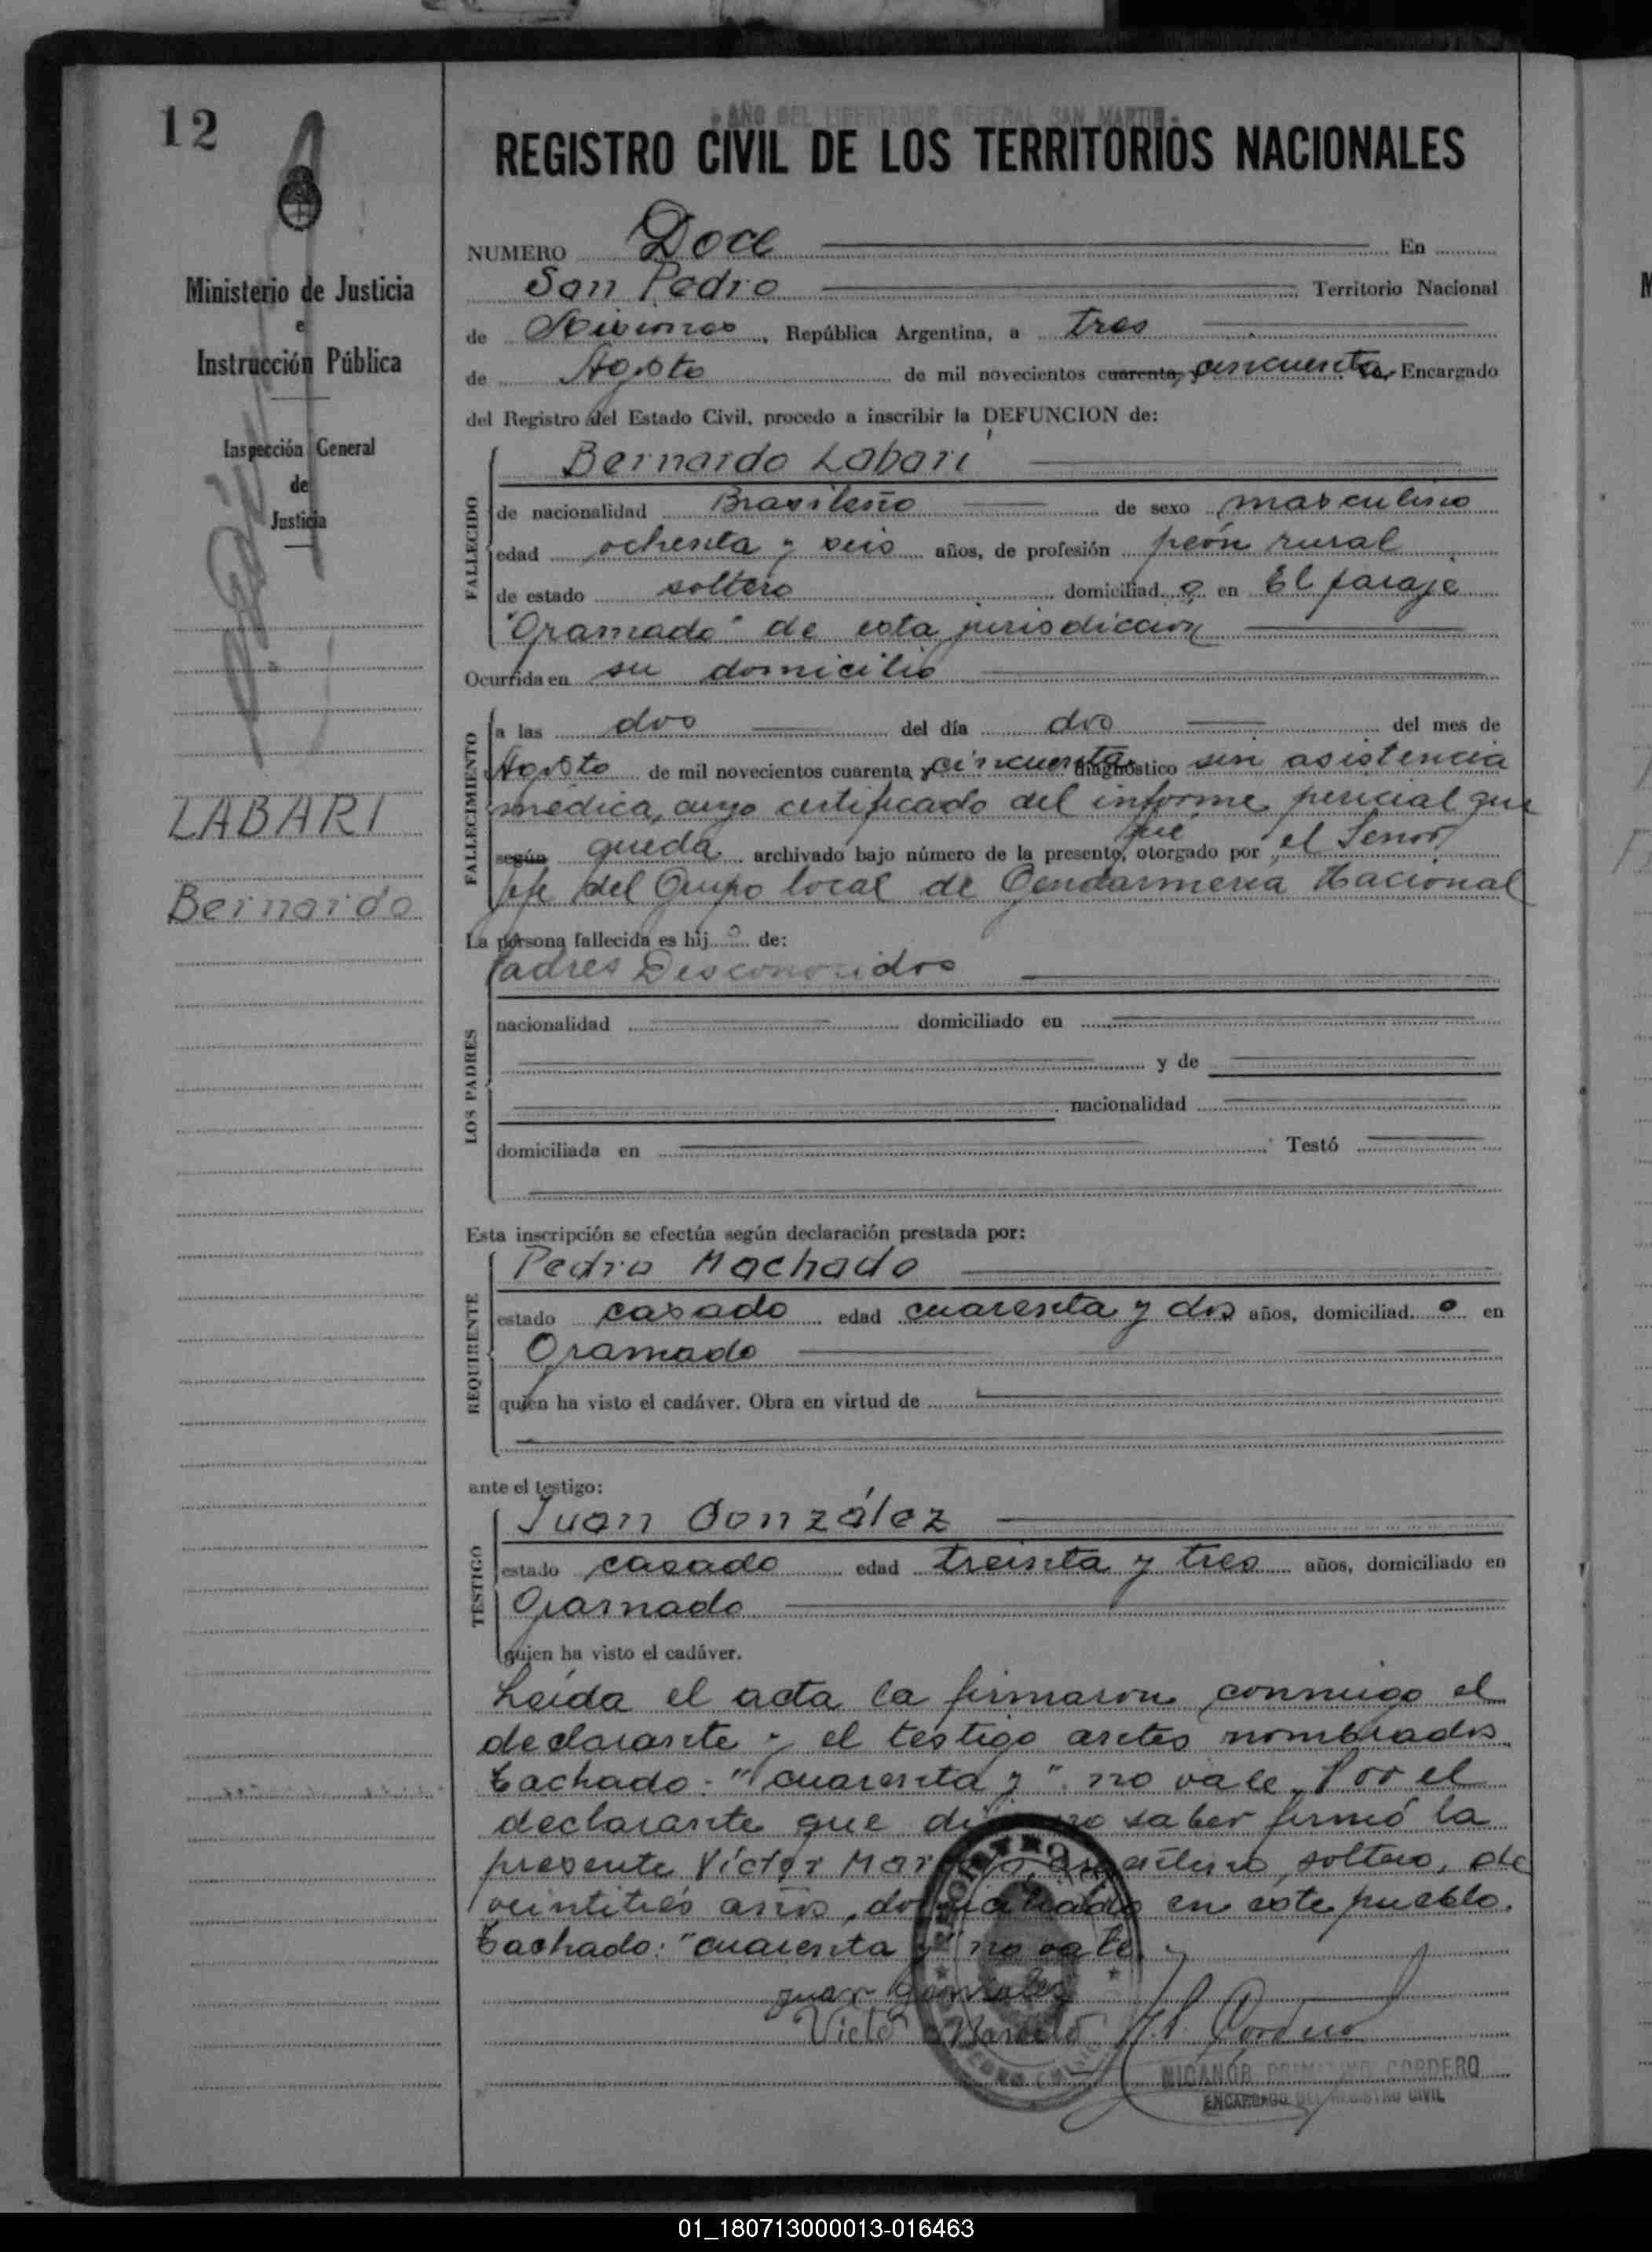 12
Ministerio de Justicia
e
Instrucción Pública
Inspección General
de
Justicia
LABARI
Bernardo
"AÑO DEL LIBERTADOR GENERAL SAN MARTIN"
REGISTRO CIVIL DE LOS TERRITORIOS NACIONALES
NUMERO Doce En
San Pedro Territorio Nacional
de Misiones, República Argentina, a tres
de Agosto de mil novecientos cuarenta y cincuenta, Encargado
del Registro del Estado Civil, procedo a inscribir la DEFUNCION de:
Bernardo Labari
FALLECIDO
de nacionalidad Brasileño de sexo masculino
edad ochenta y seis años, de profesión peón rural
de estado soltero domiciliad o en El paraje
"Gramado" de esta jurisdicción
Ocurrida en su domicilio
FALLECIMIENTO
a las dos del día dos del mes de
Agosto de mil novecientos cuarenta y cincuenta diagnóstico sin asistencia
médica, cuyo certificado del informe pericial que
fué
según queda archivado bajo número de la presente, otorgado por el Señor
Jefe del Grupo local de Gendarmeria Nacional
La persona fallecida es hij o de:
Padres Desconocidos
LOS PADRES
nacionalidad domiciliado en
y de
nacionalidad
domiciliada en Testó
Esta inscripción se efectúa según declaración prestada por:
Pedro Machado
REQUIRENTE
estado casado edad cuarenta y dos años, domiciliad o en
Gramado
quien ha visto el cadáver. Obra en virtud de
ante el testigo:
Juan González
TESTIGO
estado casado edad treinta y tres años, domiciliado en
Gramado
quien ha visto el cadáver.
Leída el acta la firmaron conmigo el
declarante y el testigo antes nombrados
Tachado: "cuarenta y" no vale. Por el
declarante que dijo no saber firmó la
presente Víctor argentino, soltero, de
veintitrés años, domiciliado en este pueblo.
Tachado: "cuarenta y" no vale.
Juan Gonzalez
Victo
N. P. Cordero
NICANOR PRIMITIVO CORDERO
ENCARGADO DEL REGISTRO CIVIL
01_180713000013-016463